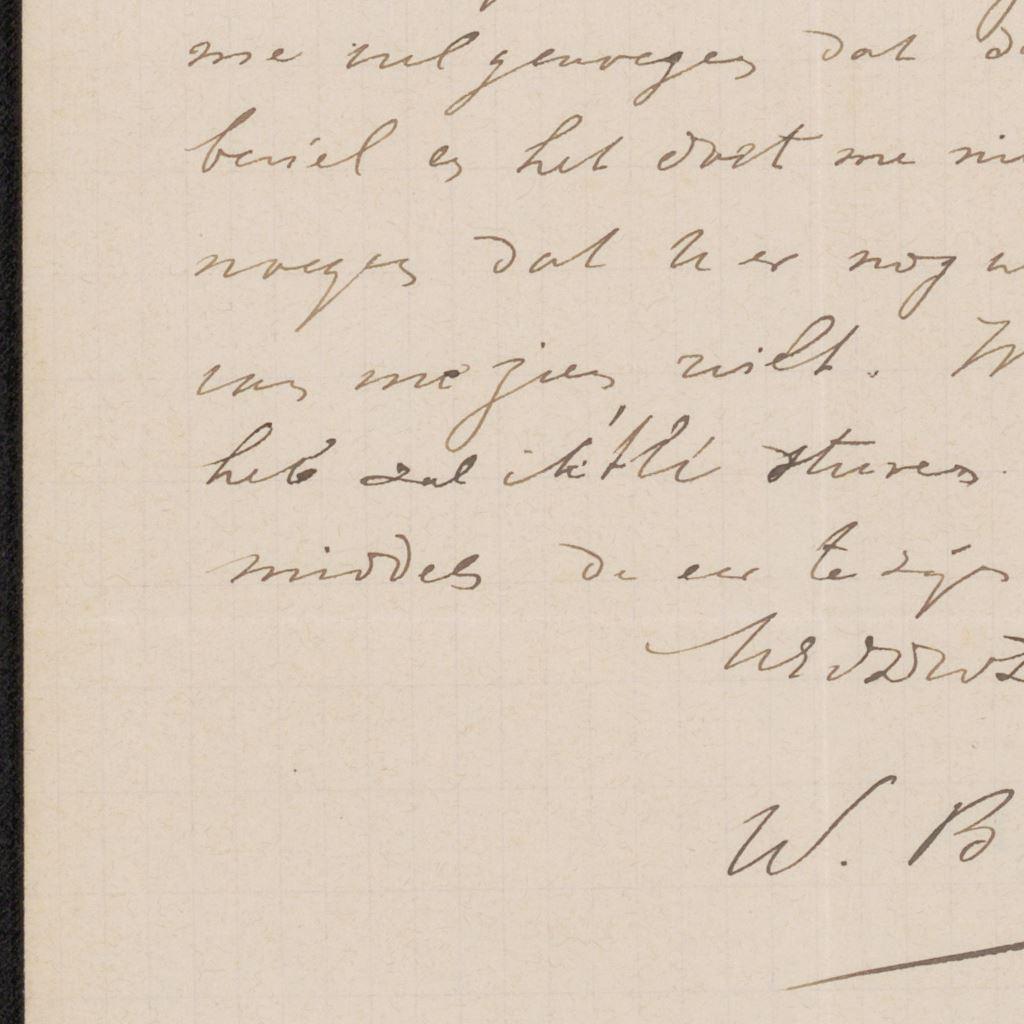 me veel genoegen dat
beviel en het doet me
noegen dat U er nog
van me zien wilt.
heb zal ik 't U sturen
middels de eer te zijn
UEdDwD
W. B